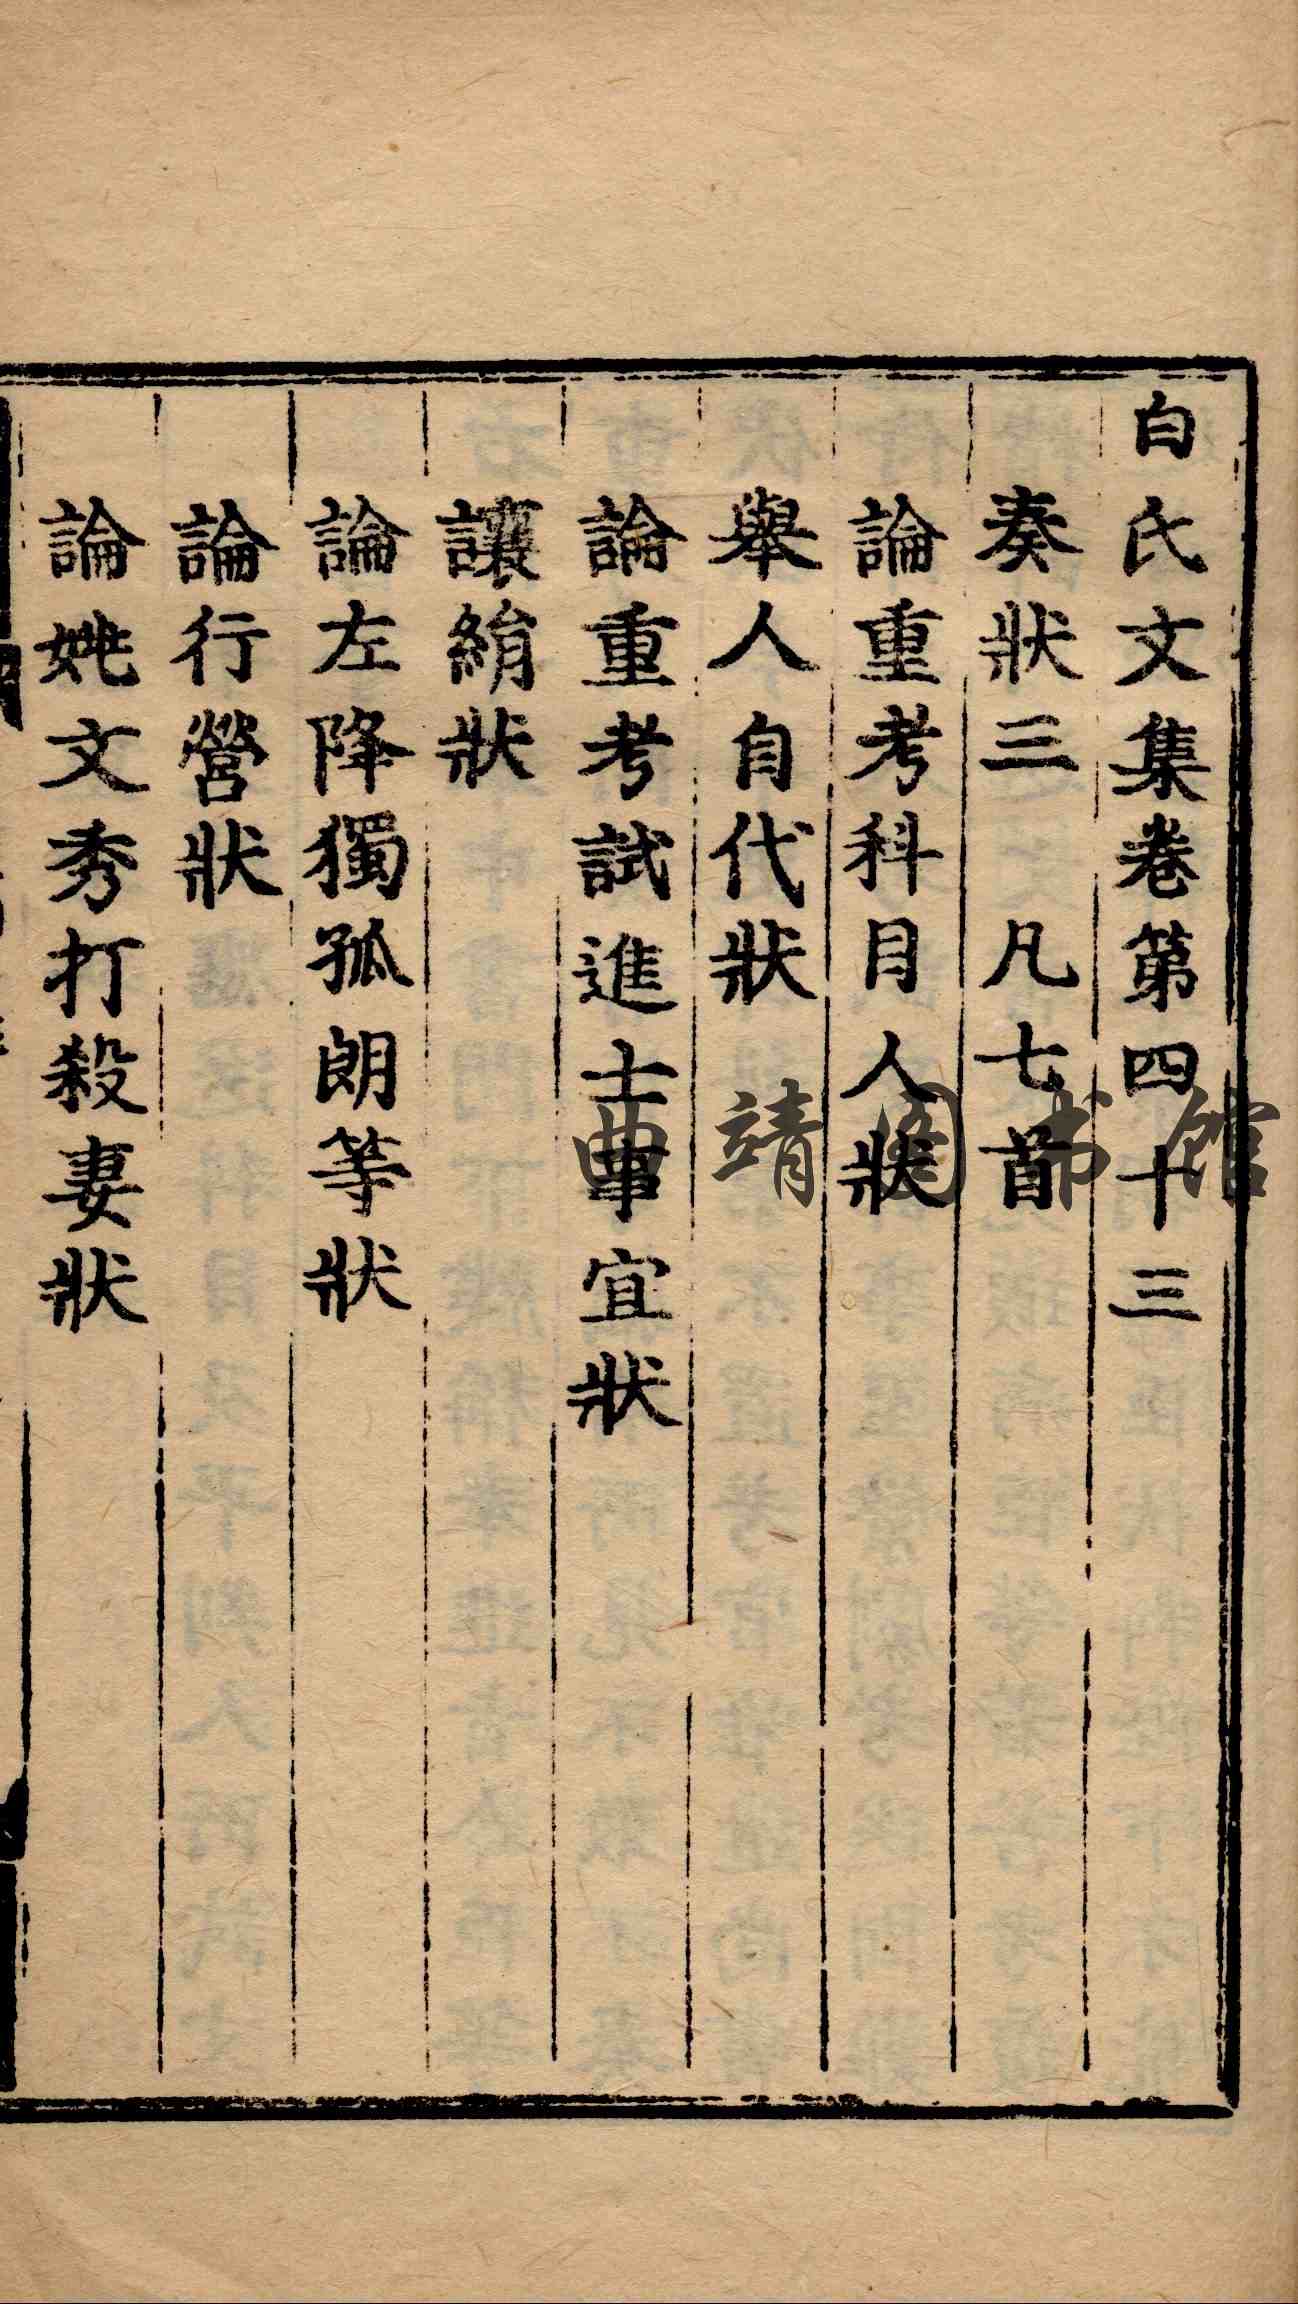 白氏文集卷第四十三
奏狀三　凡七首
論重考科目人狀
舉人自代狀
論重考試進士事宜狀
讓絹狀
論左降獨孤朗等狀
論行營狀
論姚文秀打殺妻狀
曲靖图书馆